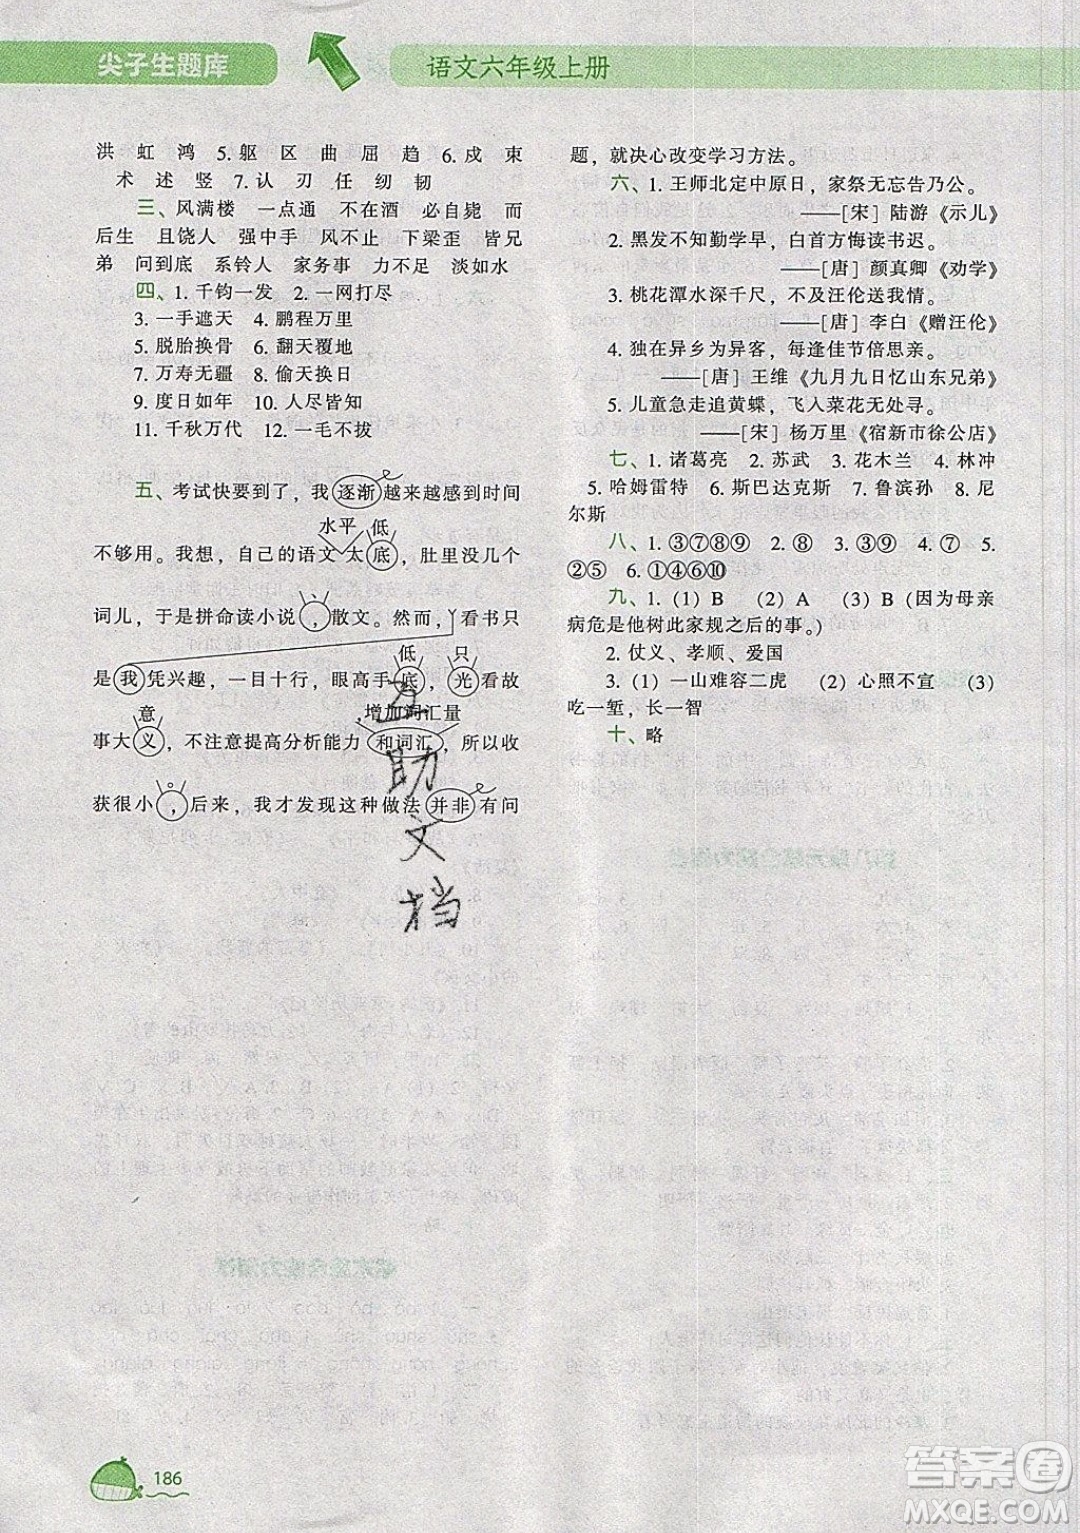 尖子生题库
语文六年级上册
洪 虹 鸿 5. 躯 区 曲 屈 趋 6. 戍 束
术 述 竖 7. 认 刃 任 纫 韧
三、风满楼 一点通 不在酒 必自毙 而
后生 且饶人 强中手 风不止 下梁歪 皆兄
弟 问到底 系铃人 家务事 力不足 淡如水
四、1. 千钧一发 2. 一网打尽
3. 一手遮天 4. 鹏程万里
5. 脱胎换骨 6. 翻天覆地
7. 万寿无疆 8. 偷天换日
9. 度日如年 10. 人尽皆知
11. 千秋万代 12. 一毛不拔
五、考试快要到了，我逐渐越来越感到时间
水平 低
不够用。我想，自己的语文太底，肚里没几个
词儿，于是拼命读小说，散文。然而，看书只
低 只
是我凭兴趣，一目十行，眼高手底，光看故
意 ，增加词汇量
事大义，不注意提高分析能力和词汇，所以收
获很小，后来，我才发现这种做法并非有问
互
助
文
档
题，就决心改变学习方法。
六、1. 王师北定中原日，家祭无忘告乃公。
——[宋] 陆游《示儿》
2. 黑发不知勤学早，白首方悔读书迟。
——[唐] 颜真卿《劝学》
3. 桃花潭水深千尺，不及汪伦送我情。
——[唐] 李白《赠汪伦》
4. 独在异乡为异客，每逢佳节倍思亲。
——[唐] 王维《九月九日忆山东兄弟》
5. 儿童急走追黄蝶，飞入菜花无处寻。
——[宋] 杨万里《宿新市徐公店》
七、1. 诸葛亮 2. 苏武 3. 花木兰 4. 林冲
5. 哈姆雷特 6. 斯巴达克斯 7. 鲁滨孙 8. 尼
尔斯
八、1. ③⑦⑧⑨ 2. ⑧ 3. ③⑨ 4. ⑦ 5.
②⑤ 6. ①④⑥⑩
九、1. (1) B (2) A (3) B (因为母亲
病危是他树此家规之后的事。)
2. 仗义、孝顺、爱国
3. (1) 一山难容二虎 (2) 心照不宣 (3)
吃一堑，长一智
十、略
186
答案圈
MXQE.COM